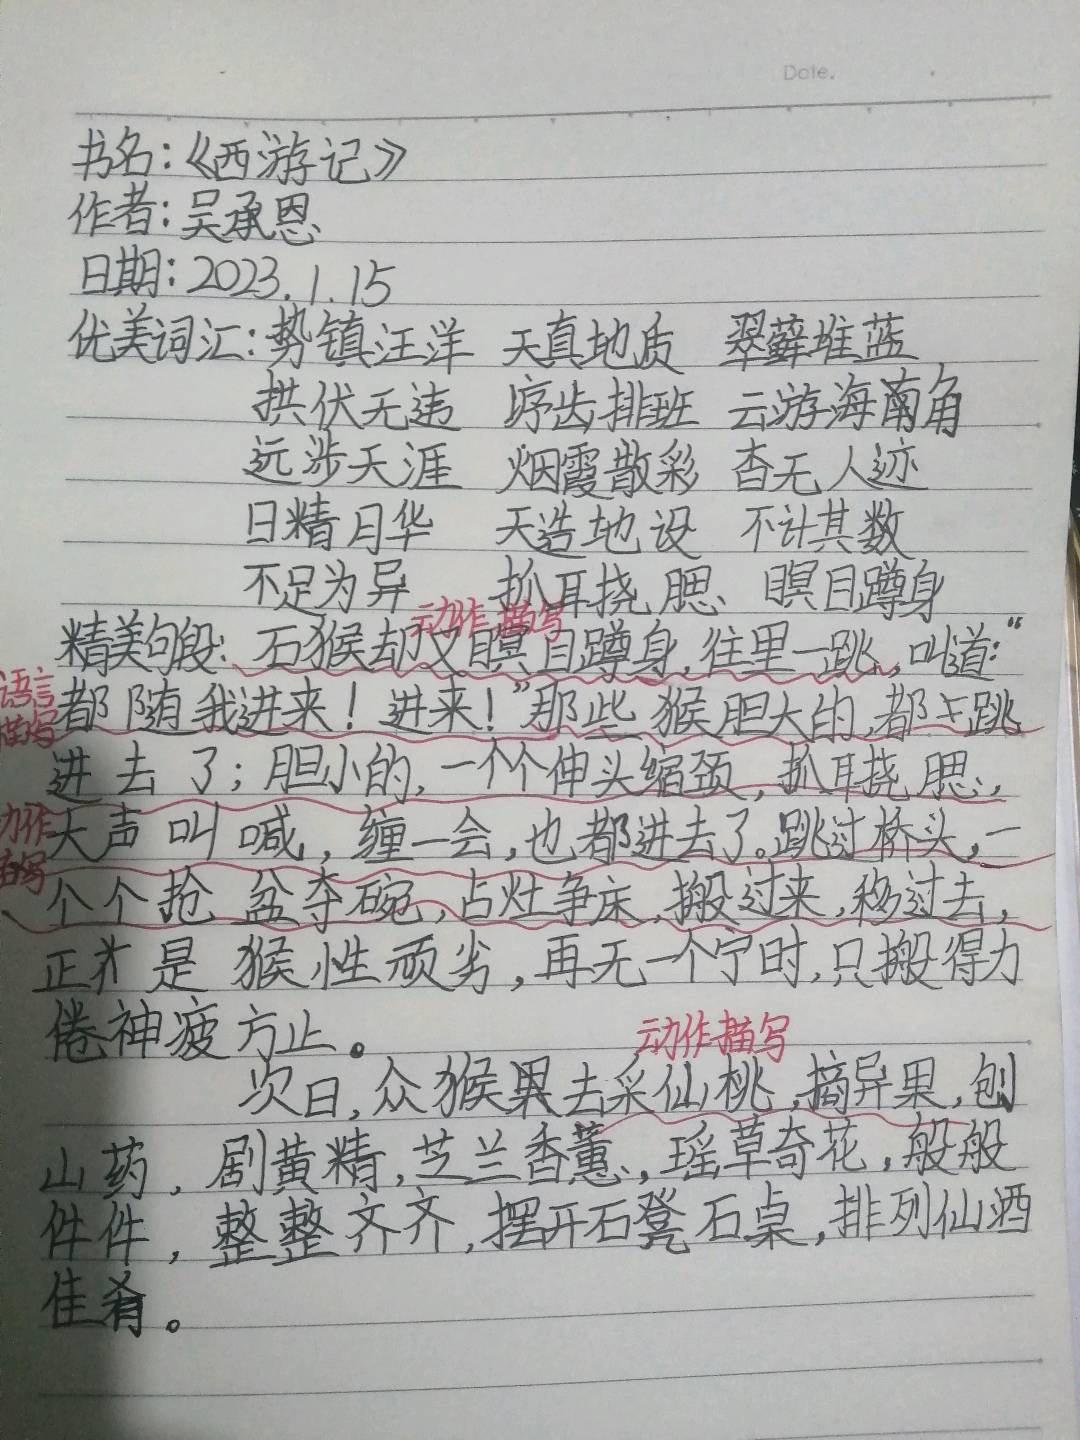 Date.
书名：《西游记》
作者：吴承恩
日期：2023.1.15
优美词汇：势镇汪洋 天真地质 翠藓堆蓝
拱伏无违 序齿排班 云游海南角
远涉天涯 烟霞散彩 杳无人迹
日精月华 天造地设 不计其数
不足为异 抓耳挠腮 瞑目蹲身
动作描写
精美句段：石猴却又瞑目蹲身，往里一跳，叫道：“
语言
描写
都随我进来！进来！”那些猴胆大的，都上跳
进去了；胆小的，一个个伸头缩颈，抓耳挠腮，
动作
描写
大声叫喊，缠一会，也都进去了。跳过桥头，一
个个抢盆夺碗，占灶争床，搬过来，移过去，
正是猴性顽劣，再无一个宁时，只搬得力
倦神疲方止。
动作描写
次日，众猴果去采仙桃，摘异果，刨
山药，劚黄精，芝兰香蕙，瑶草奇花，般般
件件，整整齐齐，摆开石凳石桌，排列仙酒
佳肴。